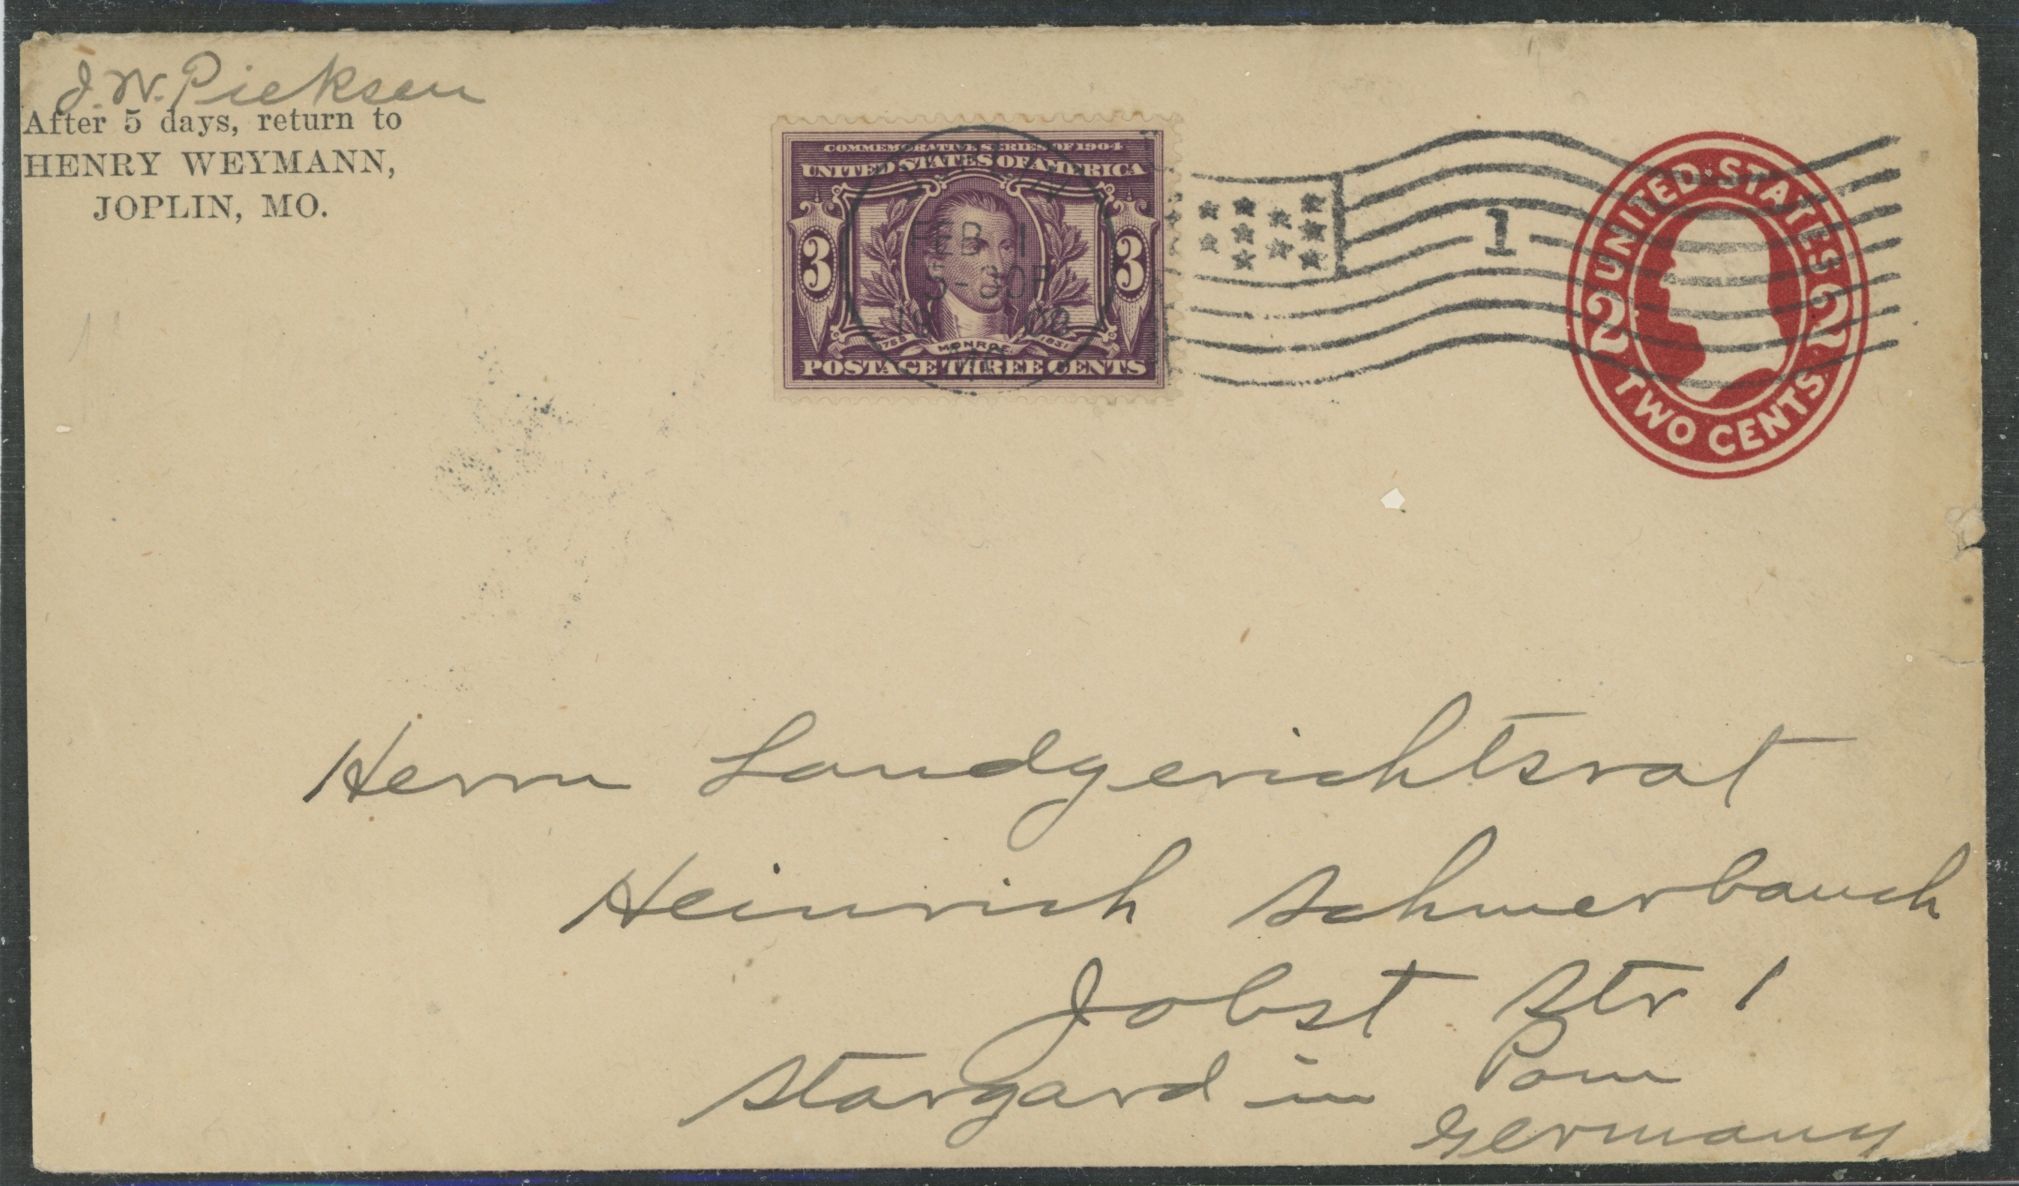 J. W. Pieksen
After 5 days, return to
HENRY WEYMANN,
JOPLIN, MO.
COMMEMORATIVE SERIES OF 1904
UNITED STATES OF AMERICA
3 3
1758 MONROE 1831
POSTAGE THREE CENTS
FEB 1
5-30P
MO.
1
UNITED·STATES
2 2
TWO CENTS
Herrn Landgerichtsrat
Heinrich Schwerbauch
Jobst Str 1
Stargard in Pom
Germany